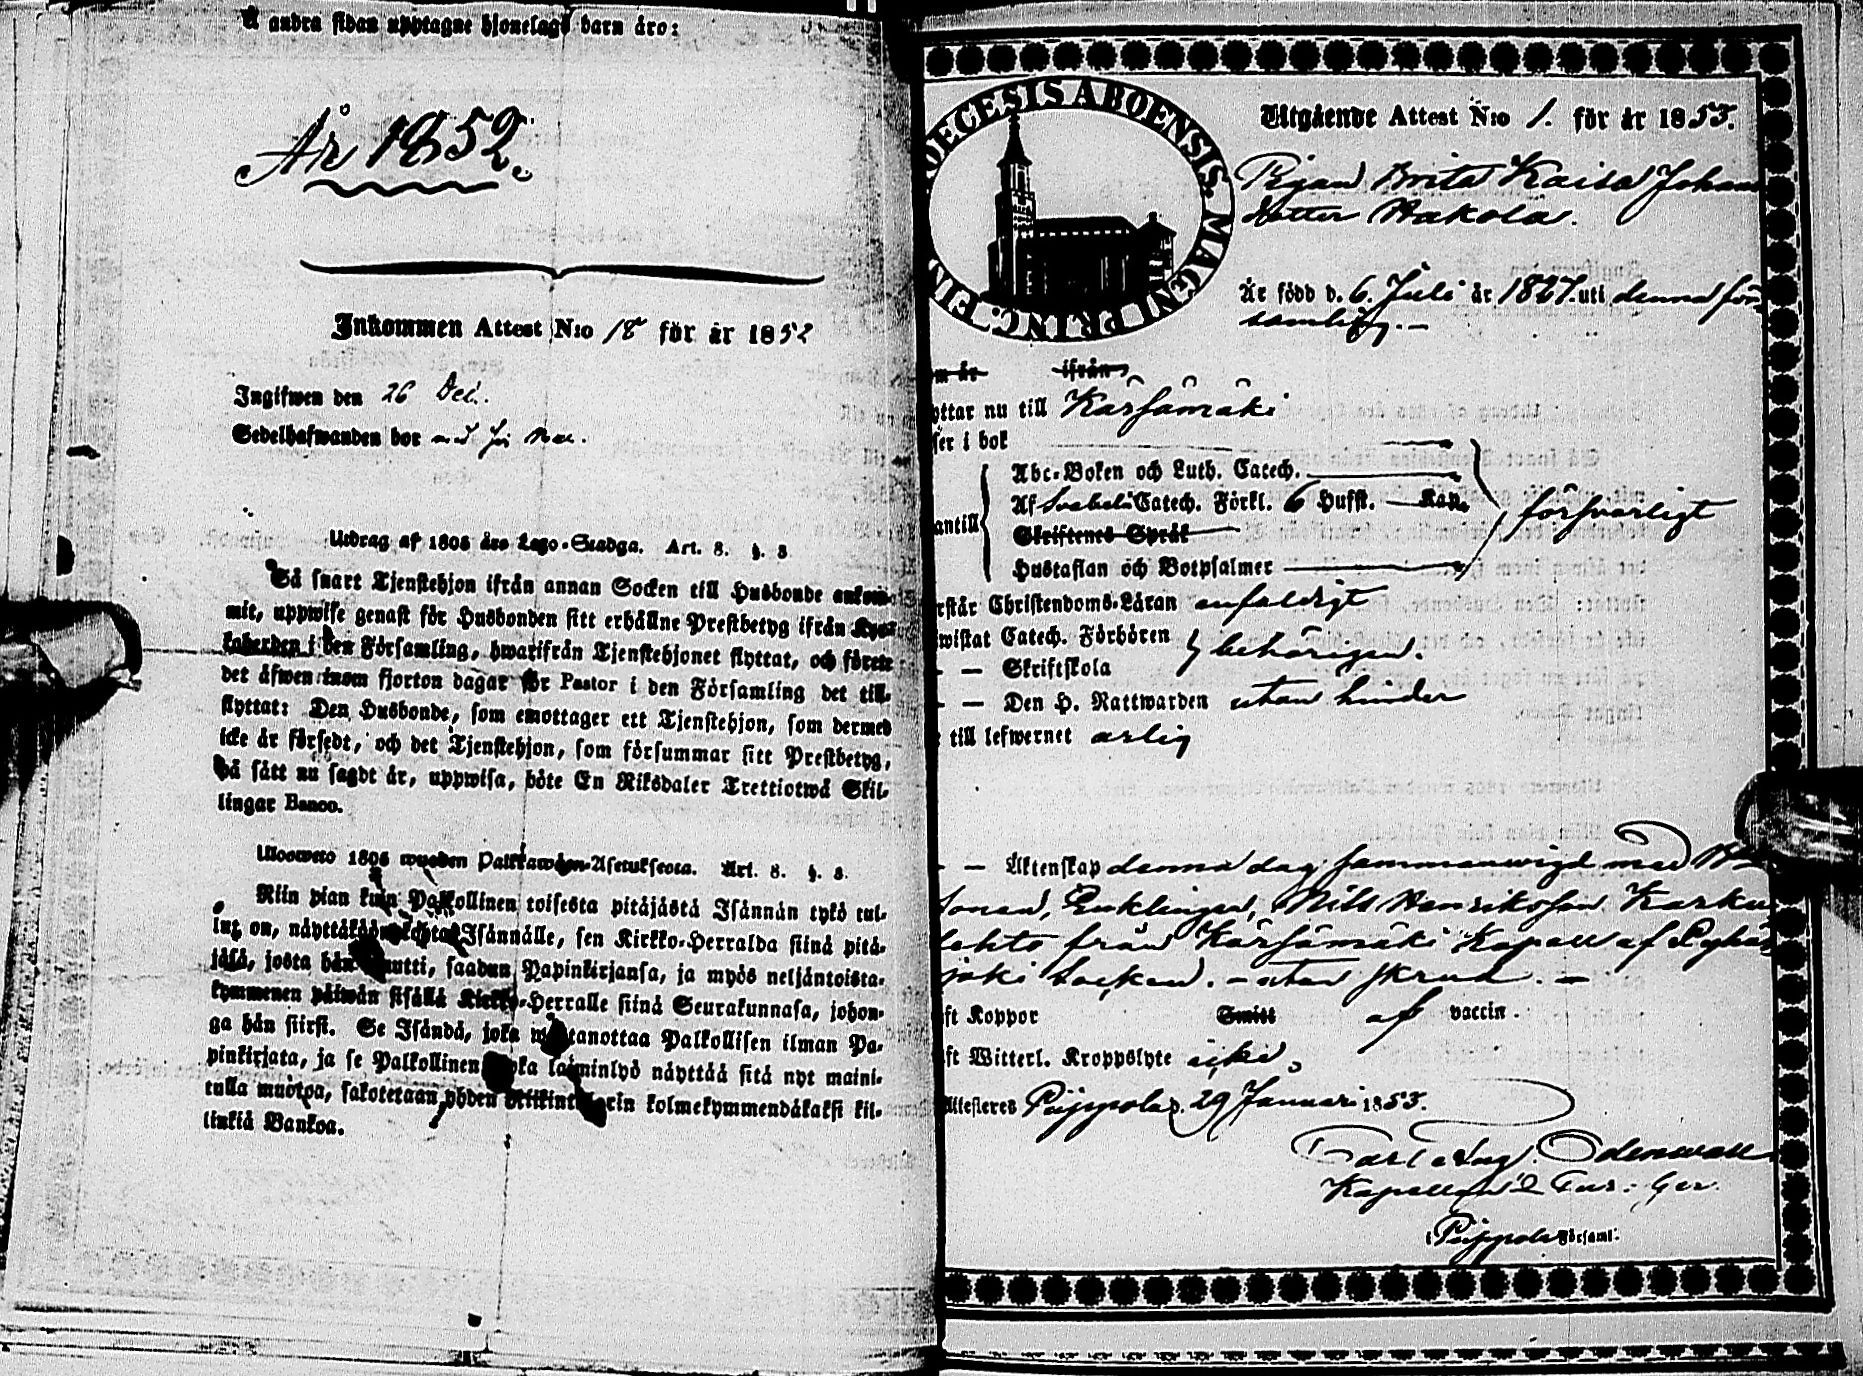 Å andra sidan upptagne hjonelags barn äro:
År 1852.
Inkommen Attest N:o 18 för år 1852
Ingifwen den 26 Dec.
Sedelhafwanden bor
Utdrag af 1805 års Lego-Stadga. Art. 8. §. 8
Så snart Tjenstehjon ifrån annan Socken till Husbonde ankom-
mit, uppwise genast för Husbonden sitt erhållne Prestbetyg ifrån Kyr-
koherden i den Församling, hwarifrån Tjenstehjonet flyttat, och förete
det äfwen inom fjorton dagar för Pastor i den Församling det till-
flyttat: Den Husbonde, som emottager ett Tjenstehjon, som dermed
icke är försedt, och det Tjenstehjon, som försummar sitt Prestbetyg,
på sätt nu sagdt är, uppwisa, böte En Riksdaler Trettiotwå Skil-
lingar Banco.
Ulosweto 1805 wuoden Palkkawäen-Asetuksesta. Art. 8. §. 8.
Niin pian kuin Palkollinen toisesta pitäjästä Isännän tykö tul-
lut on, näyttäkään kohta Isännälle, sen Kirkko-Herralda siinä pitä-
jäsä, josta hän muutti, saadun Papinkirjansa, ja myös neljäntoista-
kymmenen päiwän sisällä Kirkko-Herralle siinä Seurakunnasa, johon-
ga hän siirst. Se Isändä, joka wastanottaa Palkollisen ilman Pa-
pinkirjata, ja se Palkollinen joka laiminlyö näyttää sitä nyt maini-
tulla muotoa, sakotetaan yhden Riikintalarin kolmekymmendäkaksi kil-
linkiä Bankoa.
DIOECESIS ABOENSIS. MAGNI PRINC. FIN
Utgående Attest N:o 1. för år 1853.
Pigan Brita Kaisa Johans
dotter Hakola.
Är född d. 6. Juli år 1827. uti denna för
samling.—
om år ifrån
yttar nu till Kärsämäki
ser i bok
Abc-Boken och Luth. Catech.
Af Svebelii Catech. Förkl. 6 Hufst. Kap.
antill Skriftenes Språk försvarligt
Hustaflan och Botpsalmer
rstår Christendoms-Läran enfaldigt
wistat Catech. Förhören
behörigen.
— — Skriftskola
— — Den H. Nattwarden utan hinder
till lefwernet ärlig
— — Äktenskap denna dag sammanwigd med
sonen, Enklingen, Nils Henriksson Karku
lehto från Kärsämäki Kapell af Pyhä
joki Socken. – utan skrud. –
ft Koppor Smitt af vaccin.
ft Witterl. Kroppslyte icke.
Attesteres Piippola d. 29 Januari 1853.
Carl Aug. Odenwall
Kapellan
i Piippola Församl: